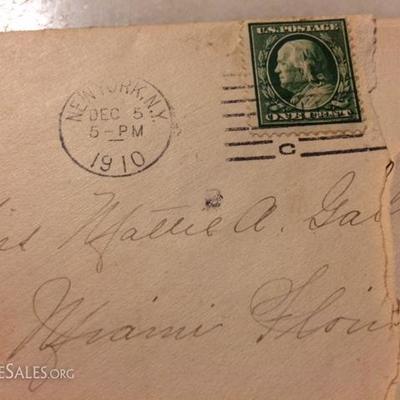 U.S. POSTAGE
ONE CENT
NEW YORK, N.Y.
DEC 5
5-PM
1910
C
iss Mattie A. Gal
Miami Flori
ESALES.ORG